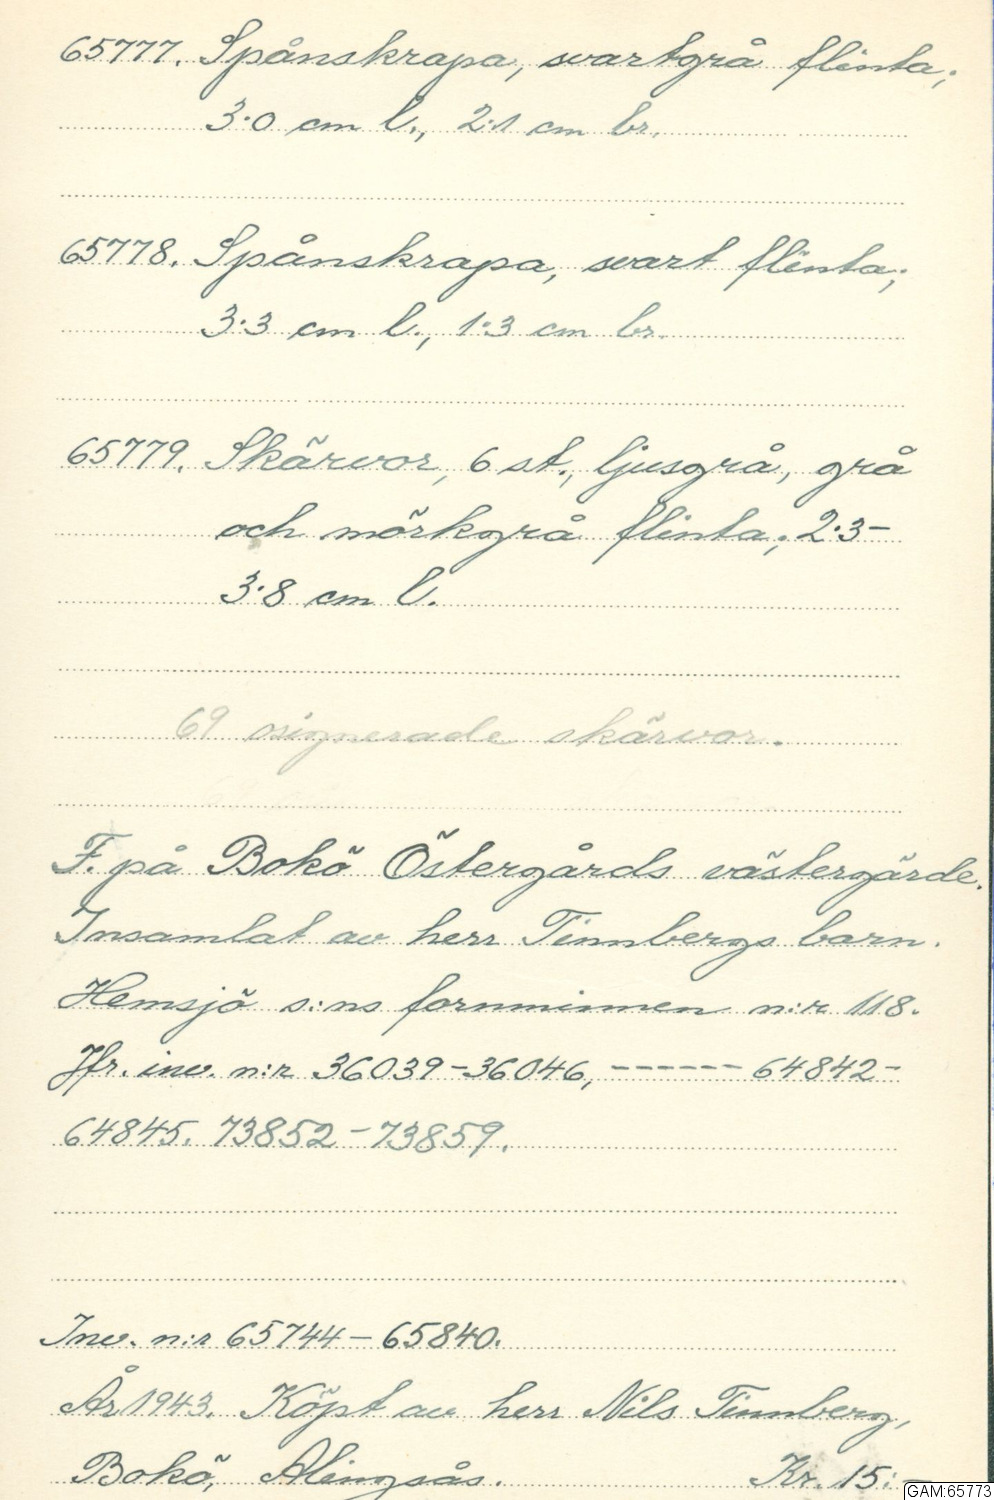 65777. Spånskrapa, svartgrå flinta;
3·0 cm l., 2·1 cm br.
65778. Spånskrapa, svart flinta;
3·3 cm l., 1·3 cm br.
65779. Skärvor, 6 st., ljusgrå, grå
och mörkgrå flinta; 2·3-
3·8 cm l.
69 osignerade skärvor.
F. på Bokö Östergårds västergärde.
Insamlat av herr Tinnbergs barn.
Hemsjö s:ns fornminnen n:r 118.
Jfr. inv. n:r 36039-36046, ------ 64842-
64845. 73852-73859.
Inv. n:r 65744-65840.
År 1943. Köpt av herr Nils Tinnberg,
Bokö, Alingsås. Kr. 15:-
GAM:65773